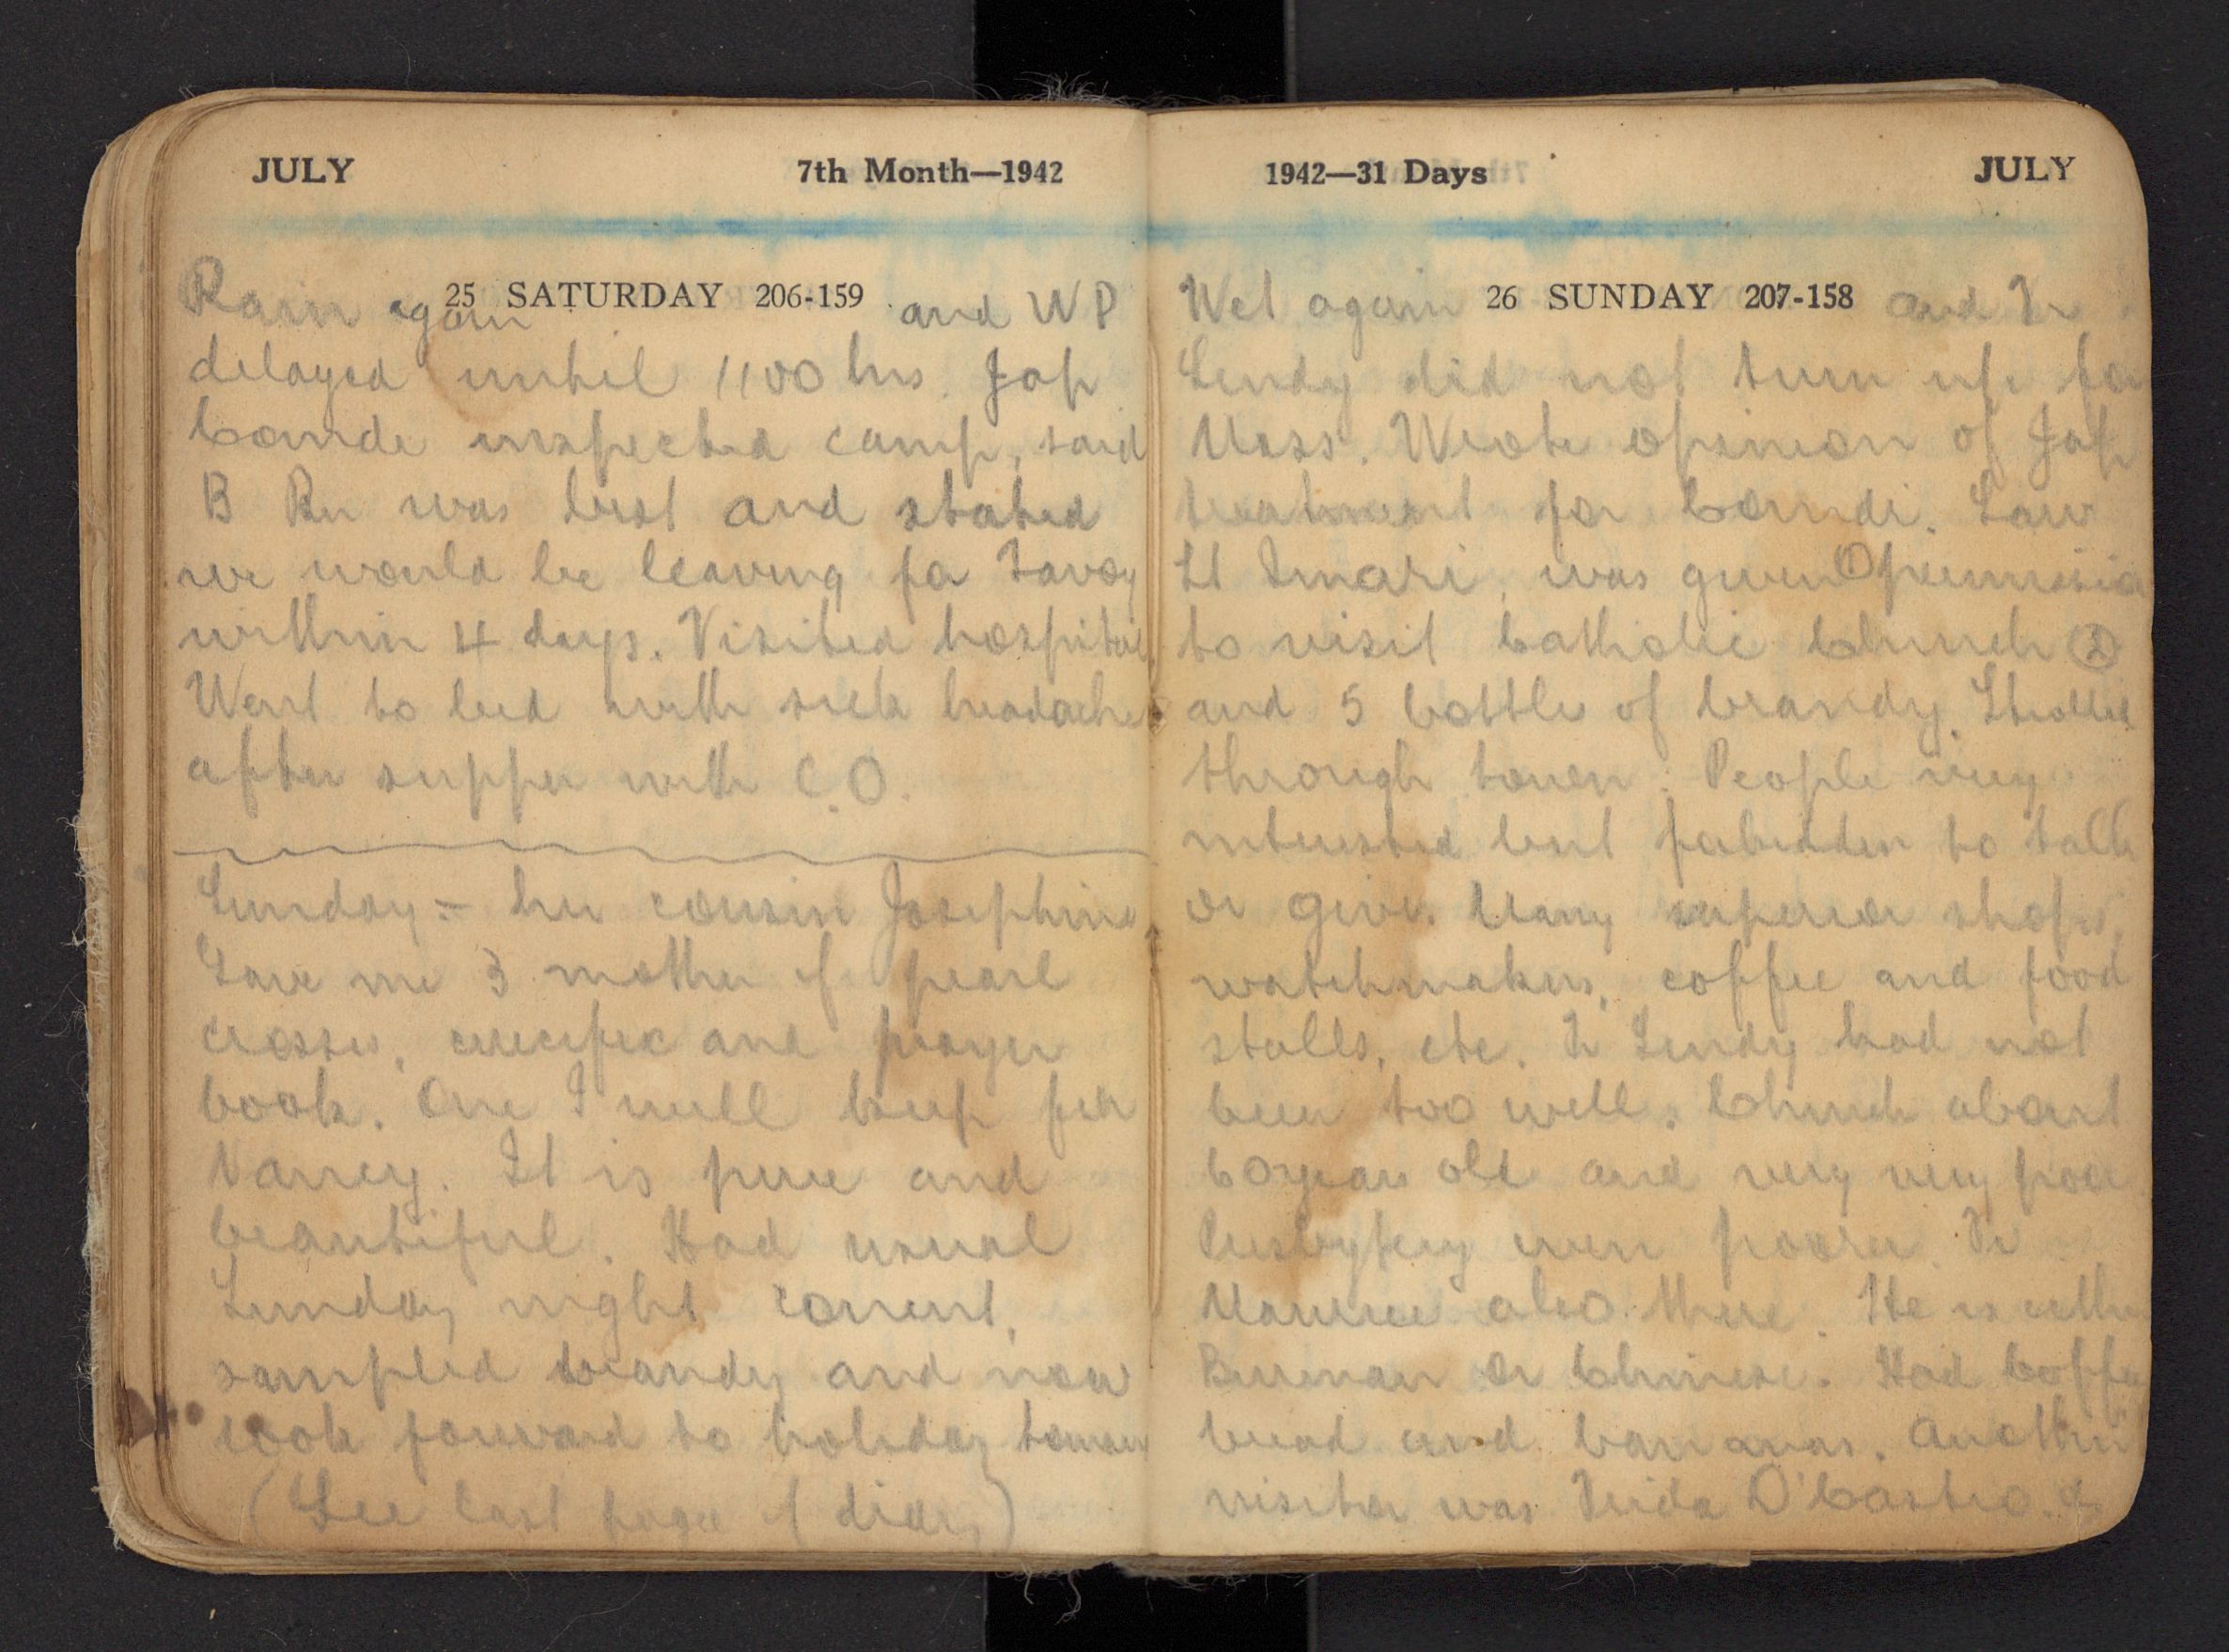 JULY 7th Month—1942
25 SATURDAY 206-159
Rain again and WP
delayed until 1100 hrs. Jap
Comdr inspected camp, said
B Bn was best and stated
we would be leaving for Tavoy
within 4 days. Visited hospital.
Went to bed with sick headache
after supper with C.O.
Sunday:- her cousin Josephine
Gave me 3 mother of pearl
crosses, crucifix and prayer
book. One I will keep for
Nancy. It is pure and
beautiful. Had usual
Sunday night concert,
sampled brandy and now
look forward to holiday
(See last page of diary)
1942—31 Days JULY
26 SUNDAY 207-158
Wet again and Fr
did not turn up for
Mass. Wrote opinion of Jap
treatment for Comdr. Saw
Lt Imari, was given ① permission
to visit Catholic Church ②
and 5 bottles of brandy. Strolled
through town. People very
interested but forbidden to talk
or give. Many superior shops,
watchmakers, coffee and food
stalls, etc. Fr had not
been too well. Church about
60 years old and very very poor
Presbytery even poorer. Fr
Maurice also there. He is either
Burman or Chinese. Had Coffee
bread and bananas. Another
visitor was D'Castro. &